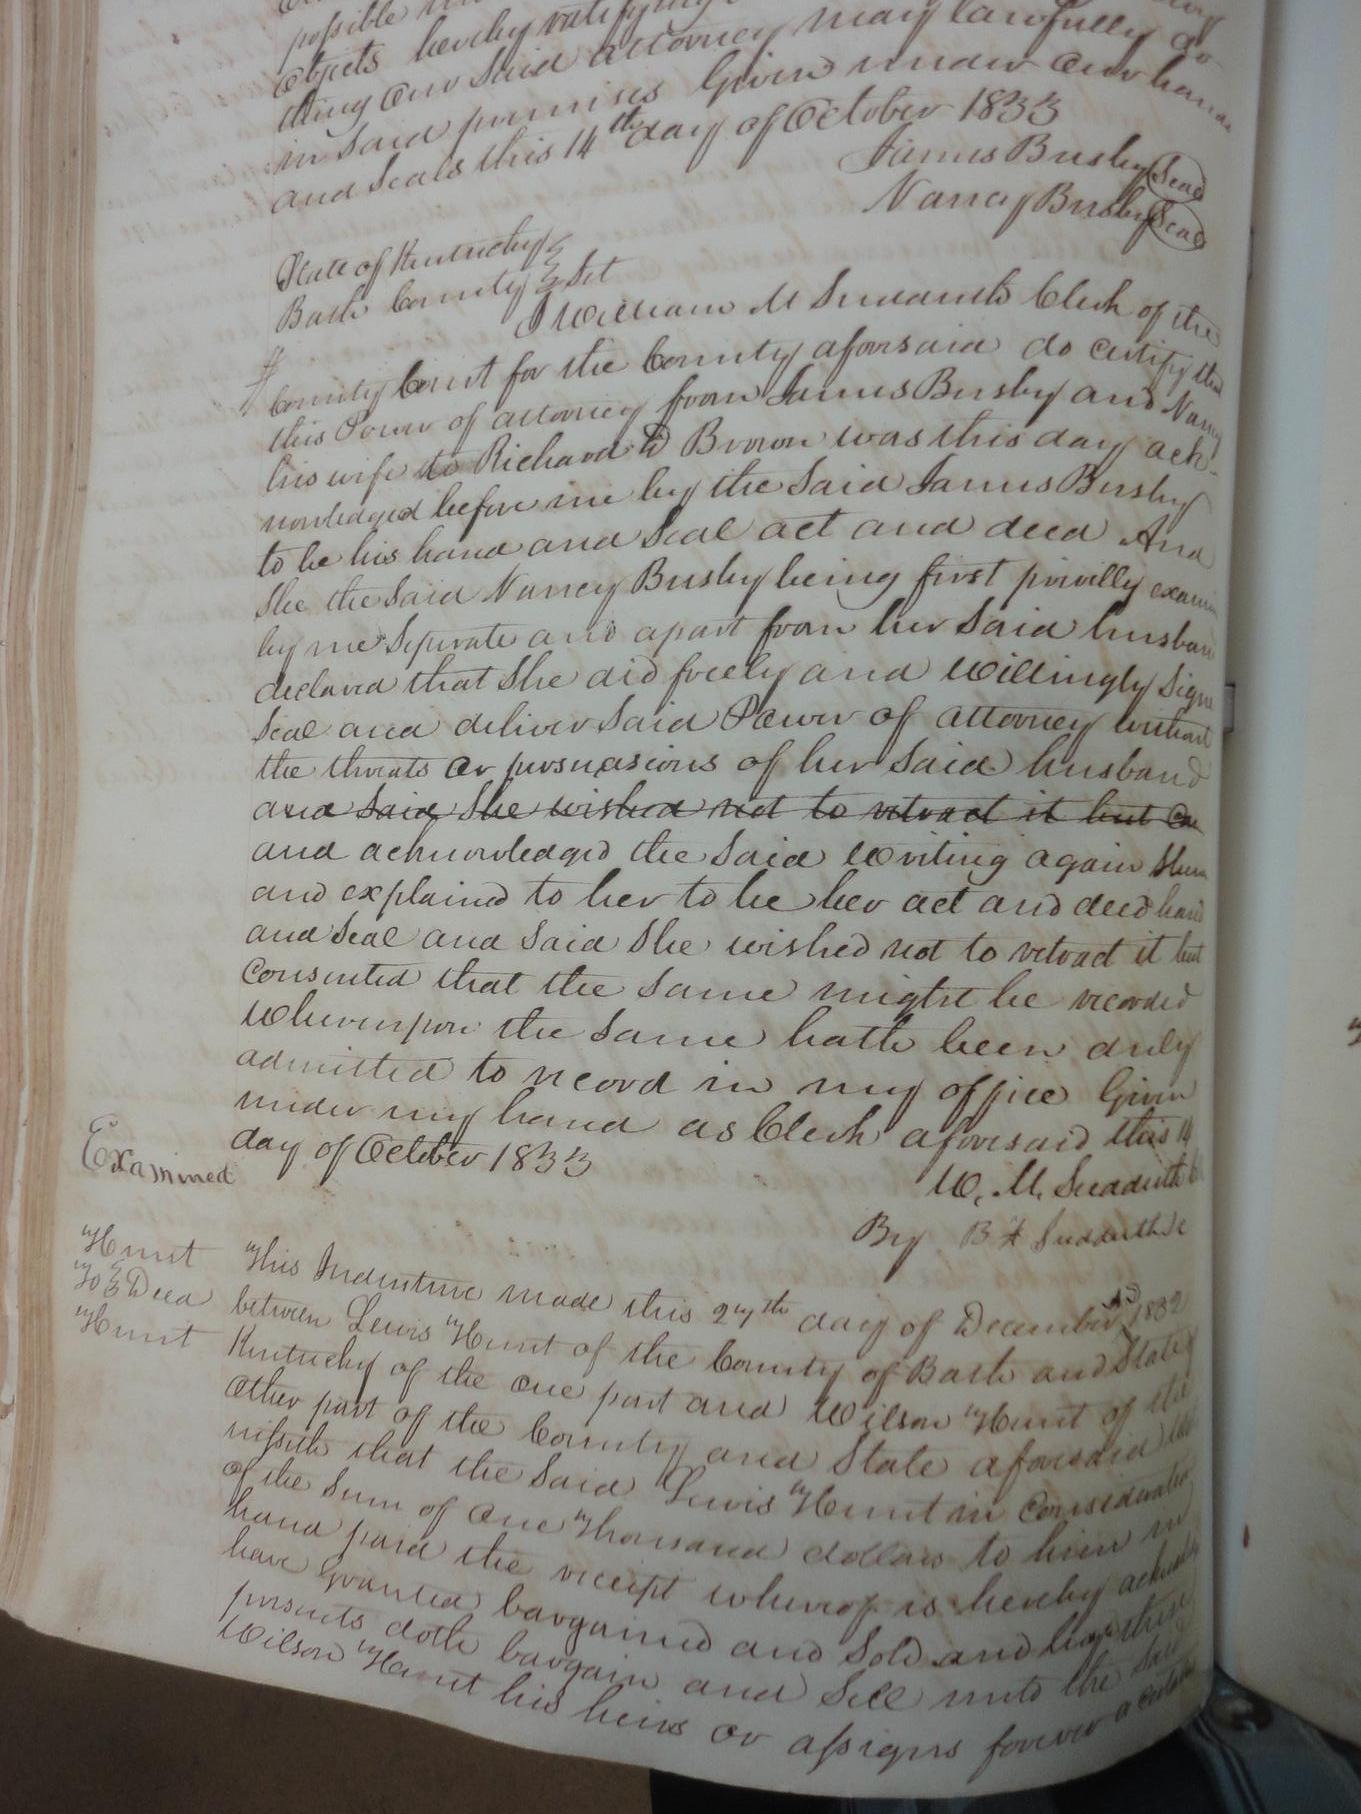 possible
objects hereby ratifying
thing our said attorney may lawfully do
in said premises Given under our hands
and seals this 14th day of October 1833
James Busby Seal
Nancy Busby Seal
State of Kentucky
Bath County Sct
I William M Sudduth Clerk of the
County Court for the County aforesaid do certify that
this Power of attorney from James Busby and Nancy
his wife to Richard D Brown was this day ack-
nowledged before me by the said James Busby
to be his hand and seal act and deed And
She the said Nancy Busby being first privilly exam
by me seperate and apart from her said husban
declared that she did freely and willingly sign
seal and deliver said Power of attorney without
the threats or persuasions of her said husband
and said she wished not to retract it but con
and acknowledged the said writing again shewn
and explained to her to be her act and deed hand
and seal and said she wished not to retract it but
consented that the same might be recorded
whereupon the same hath been duly
admitted to record in my office Given
under my hand as Clerk aforesaid this 14
day of October 1833
Examined
W. M. Sudduth C
By B F Sudduth DC
Hunt
To Deed
Hunt
This Indenture made this 27th day of December AD 1832
between Lewis Hunt of the County of Bath and State of
Kentucky of the one part and Wilson Hunt of the
other part of the County and State aforesaid Wit
nisseth that the said Lewis Hunt in consideration
of the sum of One Thousand dollars to him in
hand paid the receipt whereof is hereby acknowl
have granted bargained and sold and by these
presents doth bargain and sell unto the said
Wilson Hunt his heirs or assigns forever a certain